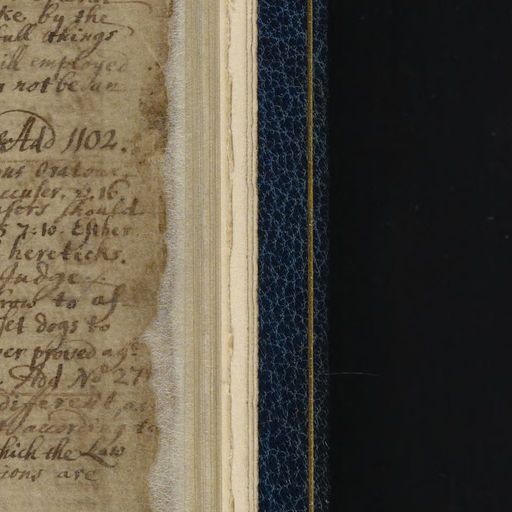 ke, by the
full things
ill employed
not began
Add 1102.
ous Oratour,
accuser, v. 16
should
5 7:10. Esther
hereticks.
Judge
to as
set dogs to
ver proved agt
Add No 27
different, as
according to
which the Law
ions are